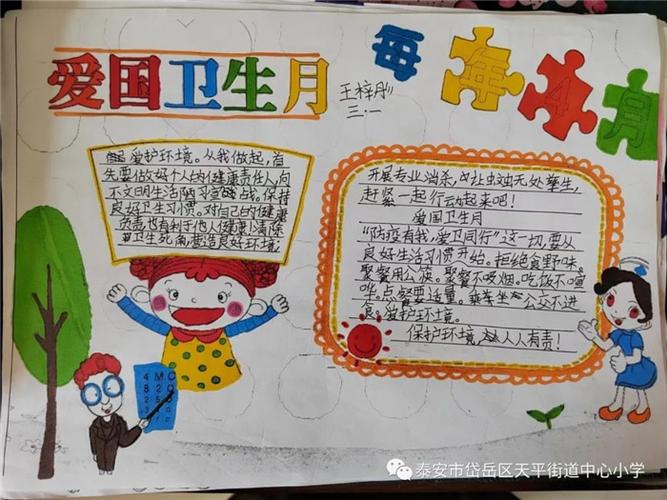 爱国卫生月
每年4月
王梓彤
三.一
爱护环境。从我做起，首
先要做好个人的健康责任人，向
不文明生活陋习宣战。保持
良好卫生习惯。对自己的健康
负责也有利于他人健康清除
卫生死角营造良好环境
开展专业消杀，让虫蚊无处孳生，
赶紧一起行动起来吧！
爱国卫生月
“防疫有我，爱卫同行”这一切，要从
良好生活习惯开始。拒绝食野味。
聚餐用公筷。聚餐不吸烟。吃饭不喧
哗。点餐要适量。乘车坐公交不进
食。爱护环境。
保护环境人人有责！
泰安市岱岳区天平街道中心小学